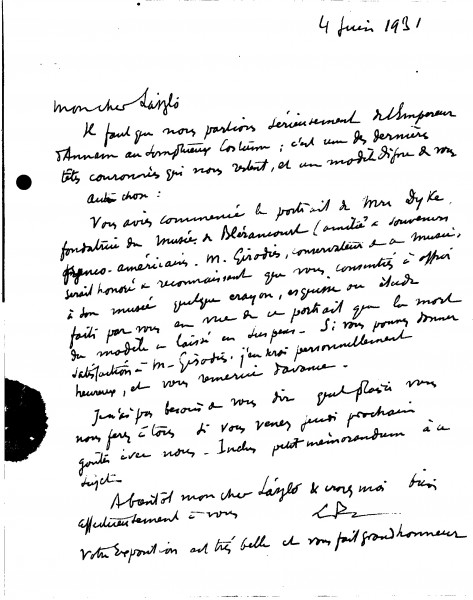 4 Juin 1931
Mon cher László
Il faut que nous parlions sérieusement de l'Empereur
d'Annam au somptueux costume ; c'est une des dernières
têtes couronnées qui nous restent, et un modèle digne de vous
Autre chose :
Vous aviez commencé le portrait de Mrs Dyke
fondatrice du Musée de Blérancourt (amitié & souvenirs
franco-américains. M. Girodie, conservateur de ce musée,
serait honoré & reconnaissant que vous consentiez à offrir
à son musée quelque crayon, esquisse ou étude
faits par vous en vue de ce portrait que la mort
du modèle a laissé en suspens. Si vous pouvez donner
satisfaction à M. Girodie, j'en serai personnellement
heureux, et vous remercie d'avance.
Je n'ai pas besoin de vous dire quel plaisir vous
nous ferez à tous si vous venez jeudi prochain
goûter avec nous. Inclus petit mémorandum à ce
sujet.
A bientôt mon cher László & croyez moi bien
affectueusement à vous
Votre Exposition est très belle et vous fait grand honneur